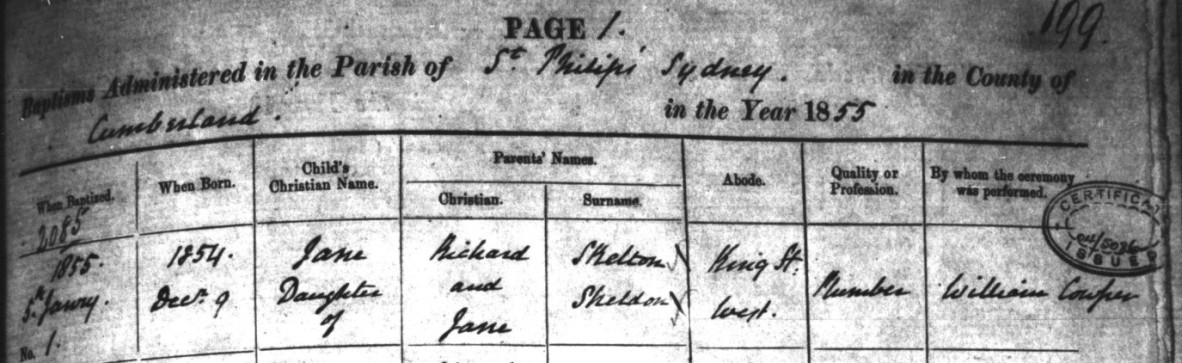 199.
PAGE 1.
Baptisms Administered in the Parish of St. Philips' Sydney. in the County of
Cumberland. in the Year 1855
When Baptized. When Born. Child's Christian Name. Parents' Names. Abode. Quality or Profession. By whom the ceremony was performed.
Christian. Surname.
2085
1855. 1854. Jane Richard Skelton King St.
5th Janry. Decr. 9 Daughter and Skeldon West. Plumber William Cowper
No. 1. of Jane
CERTIFICAT
ISSUED